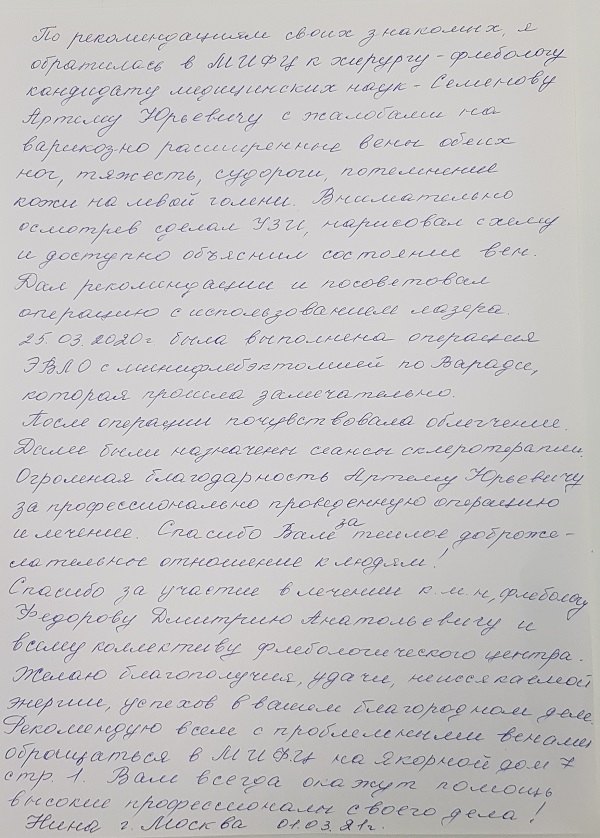 По рекомендациям своих знакомых, я
обратилась в МИФЦ к хирургу-флебологу
кандидату медицинских наук - Семенову
Артему Юрьевичу с жалобами на
варикозно расширенные вены обеих
ног, тяжесть, судороги, потемнение
кожи на левой голени. Внимательно
осмотрев сделал УЗИ, нарисовал схему
и доступно объяснил состояние вен.
Дал рекомендации и посоветовал
операцию с использованием лазера.
25.03.2020г была выполнена операция
ЭВЛО с минифлебэктомией по Варади,
которая прошла замечательно.
После операции почувствовала облегчение.
Далее были назначены сеансы склеротерапии.
Огромная благодарность Артему Юрьевичу
за профессионально проведенную операцию
и лечение. Спасибо Вам за теплое доброже-
лательное отношение к людям!
Спасибо за участие в лечении к.м.н, флебологу
Федорову Дмитрию Анатольевичу и
всему коллективу флебологического центра.
Желаю благополучия, удачи, неиссякаемой
энергии, успехов в вашем благородном деле.
Рекомендую всем с проблемными венами
обращаться в МИФЦ на Якорной дом 7
стр. 1. Вам всегда окажут помощь
высокие профессионалы своего дела!
Нина г. Москва 01.03.21г.